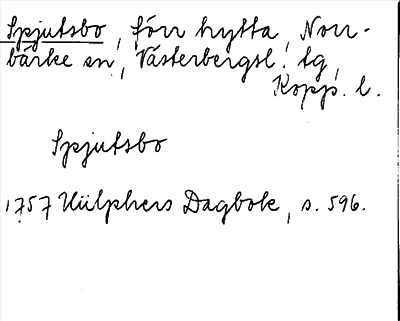 Spjutsbo, förr hytta, Norr-
bärke sn, Västerbergsl. tg,
Kopp. l.
Spjutsbo
1757 Hülphers Dagbok, s. 596.